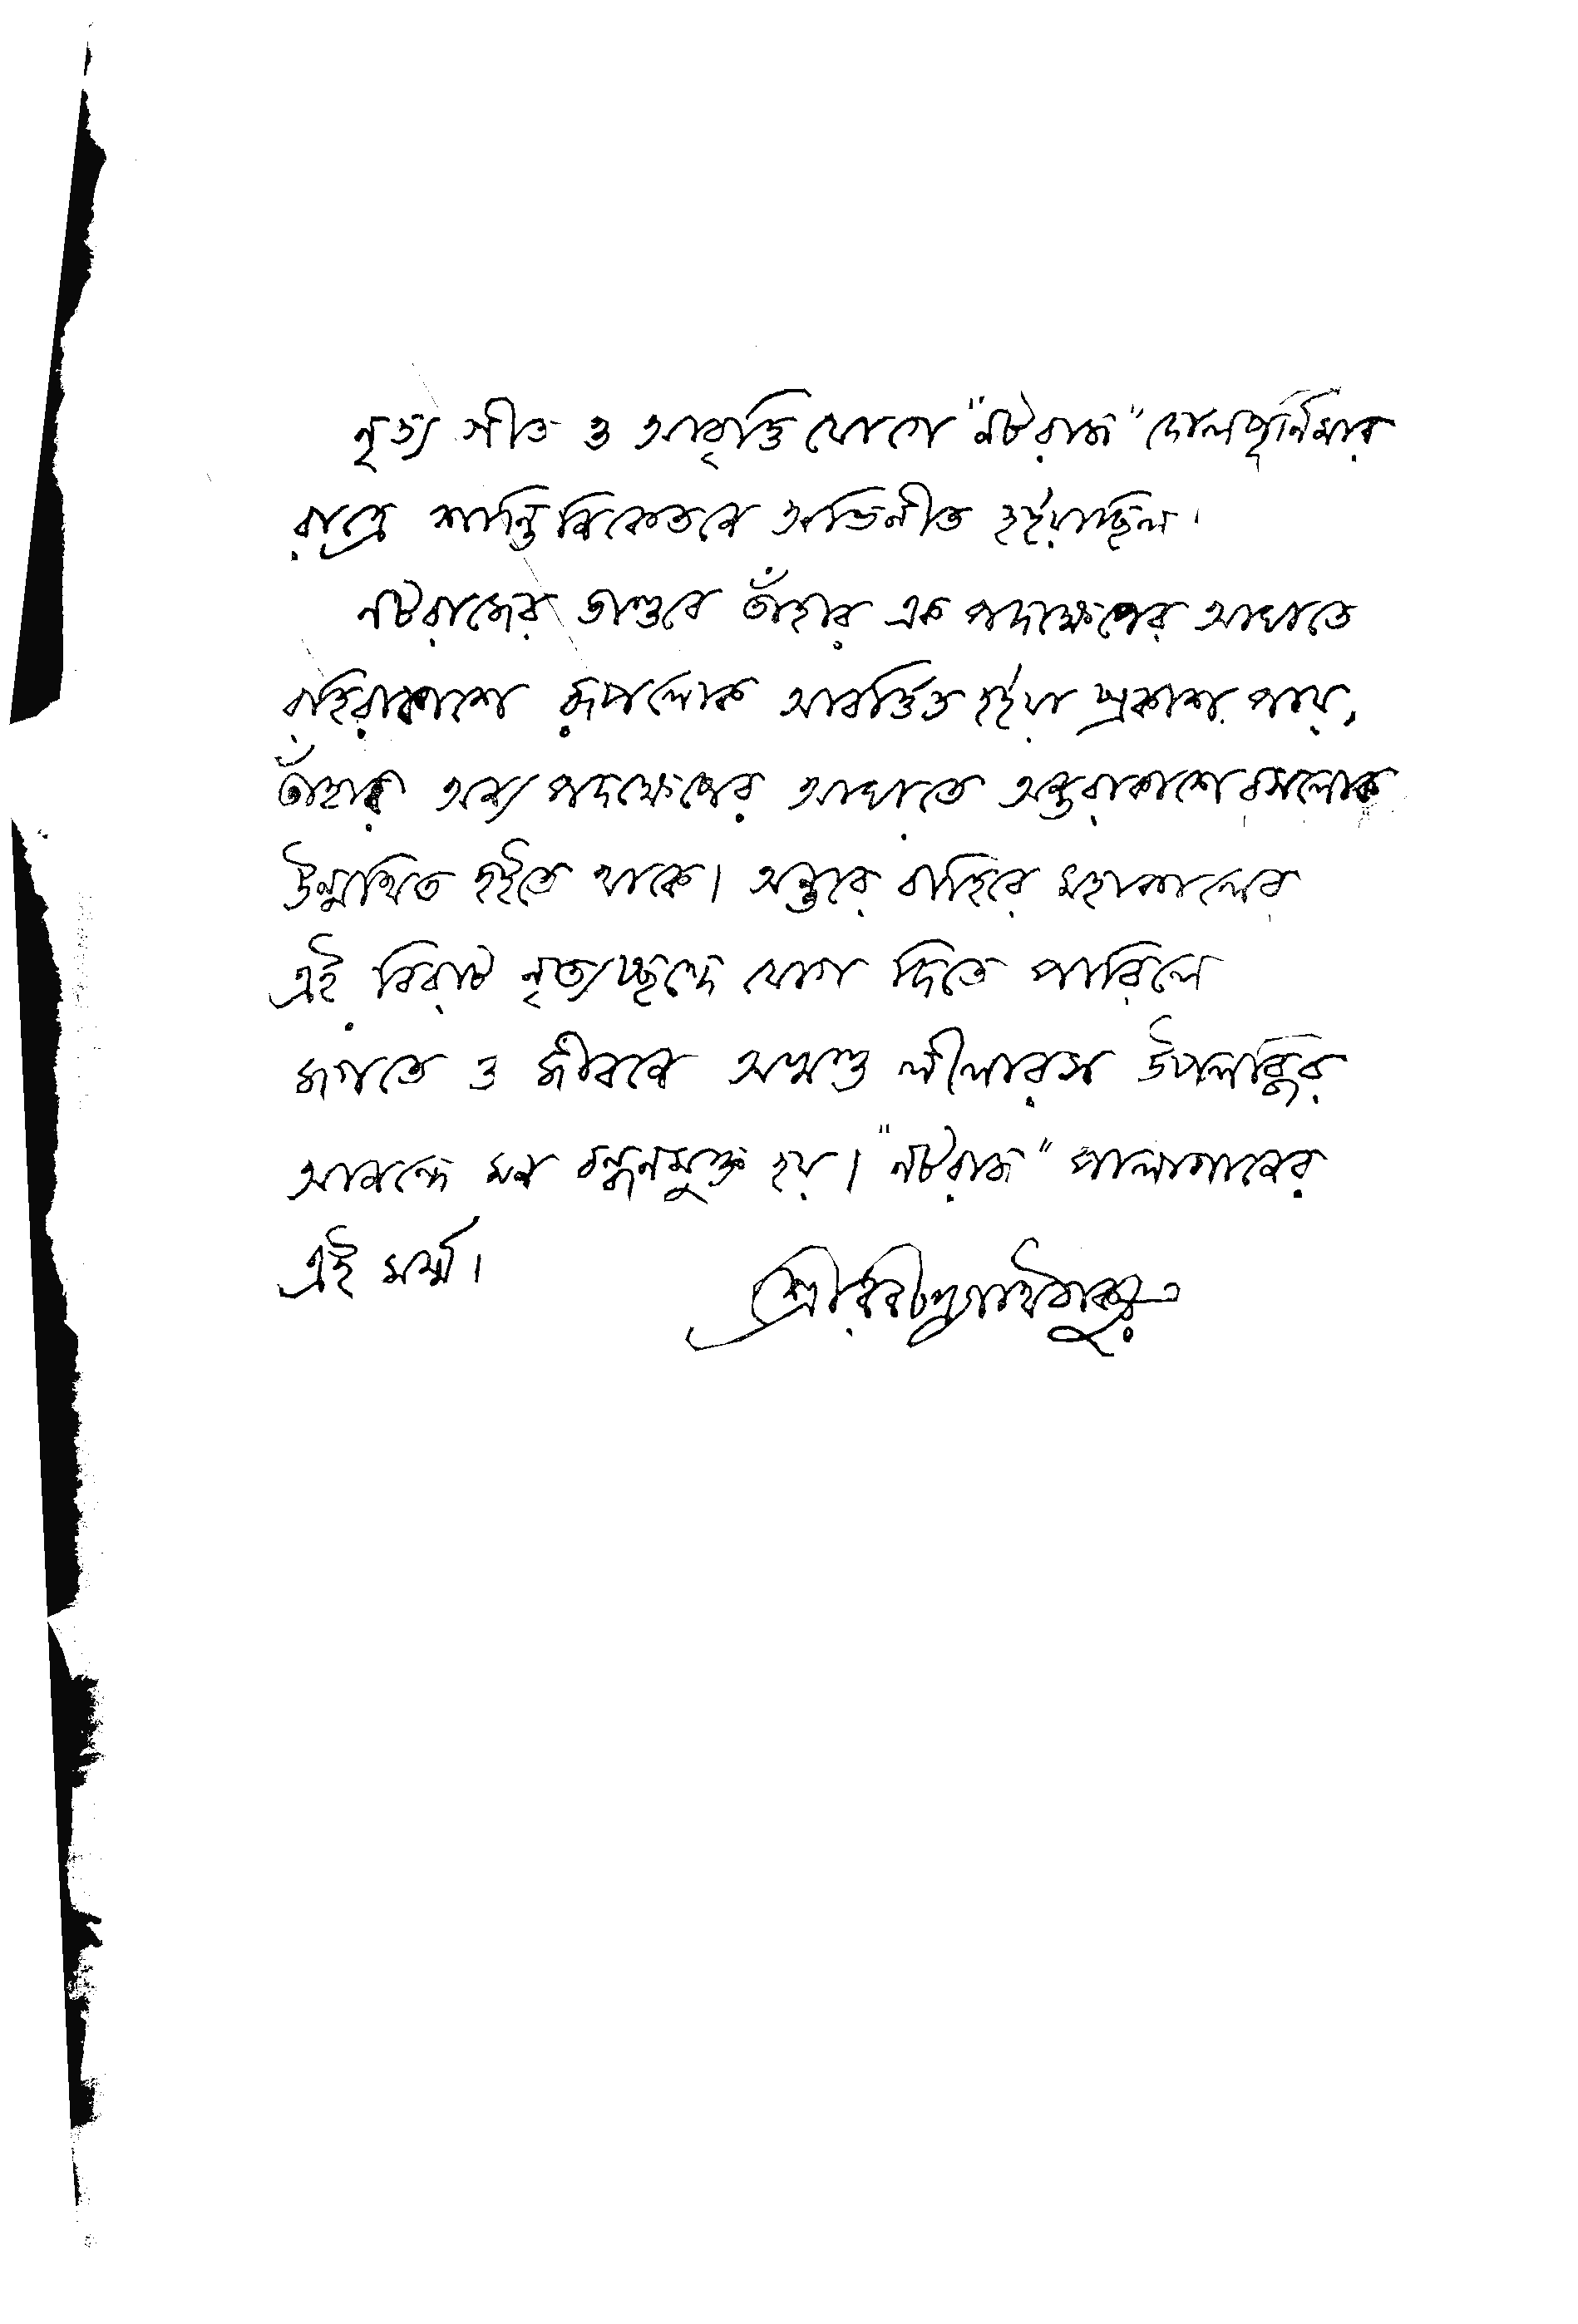 নৃত্য গীত ও আবৃত্তি যোগে "নটরাজ" দোলপূর্ণিমার
রাত্রে শান্তিনিকেতনে অভিনীত হইয়াছিল।
নটরাজের তাণ্ডবে তাঁহার এক পদক্ষেপের আঘাতে
বহিরাকাশে রূপলোক আবর্ত্তিত হইয়া প্রকাশ পায়,
তাঁহার অন্য পদক্ষেপের আঘাতে অন্তরাকাশে রসলোক
উন্মথিত হইতে থাকে। অন্তরে বাহিরে মহাকালের
এই বিরাট নৃত্যচ্ছন্দে যোগ দিতে পারিলে
জগতে ও জীবনে অখণ্ড লীলারস উপলব্ধির
আনন্দে মন বন্ধনমুক্ত হয়। "নটরাজ" পালাগানের
এই মর্ম্ম।
শ্রীরবীন্দ্রনাথ ঠাকুর